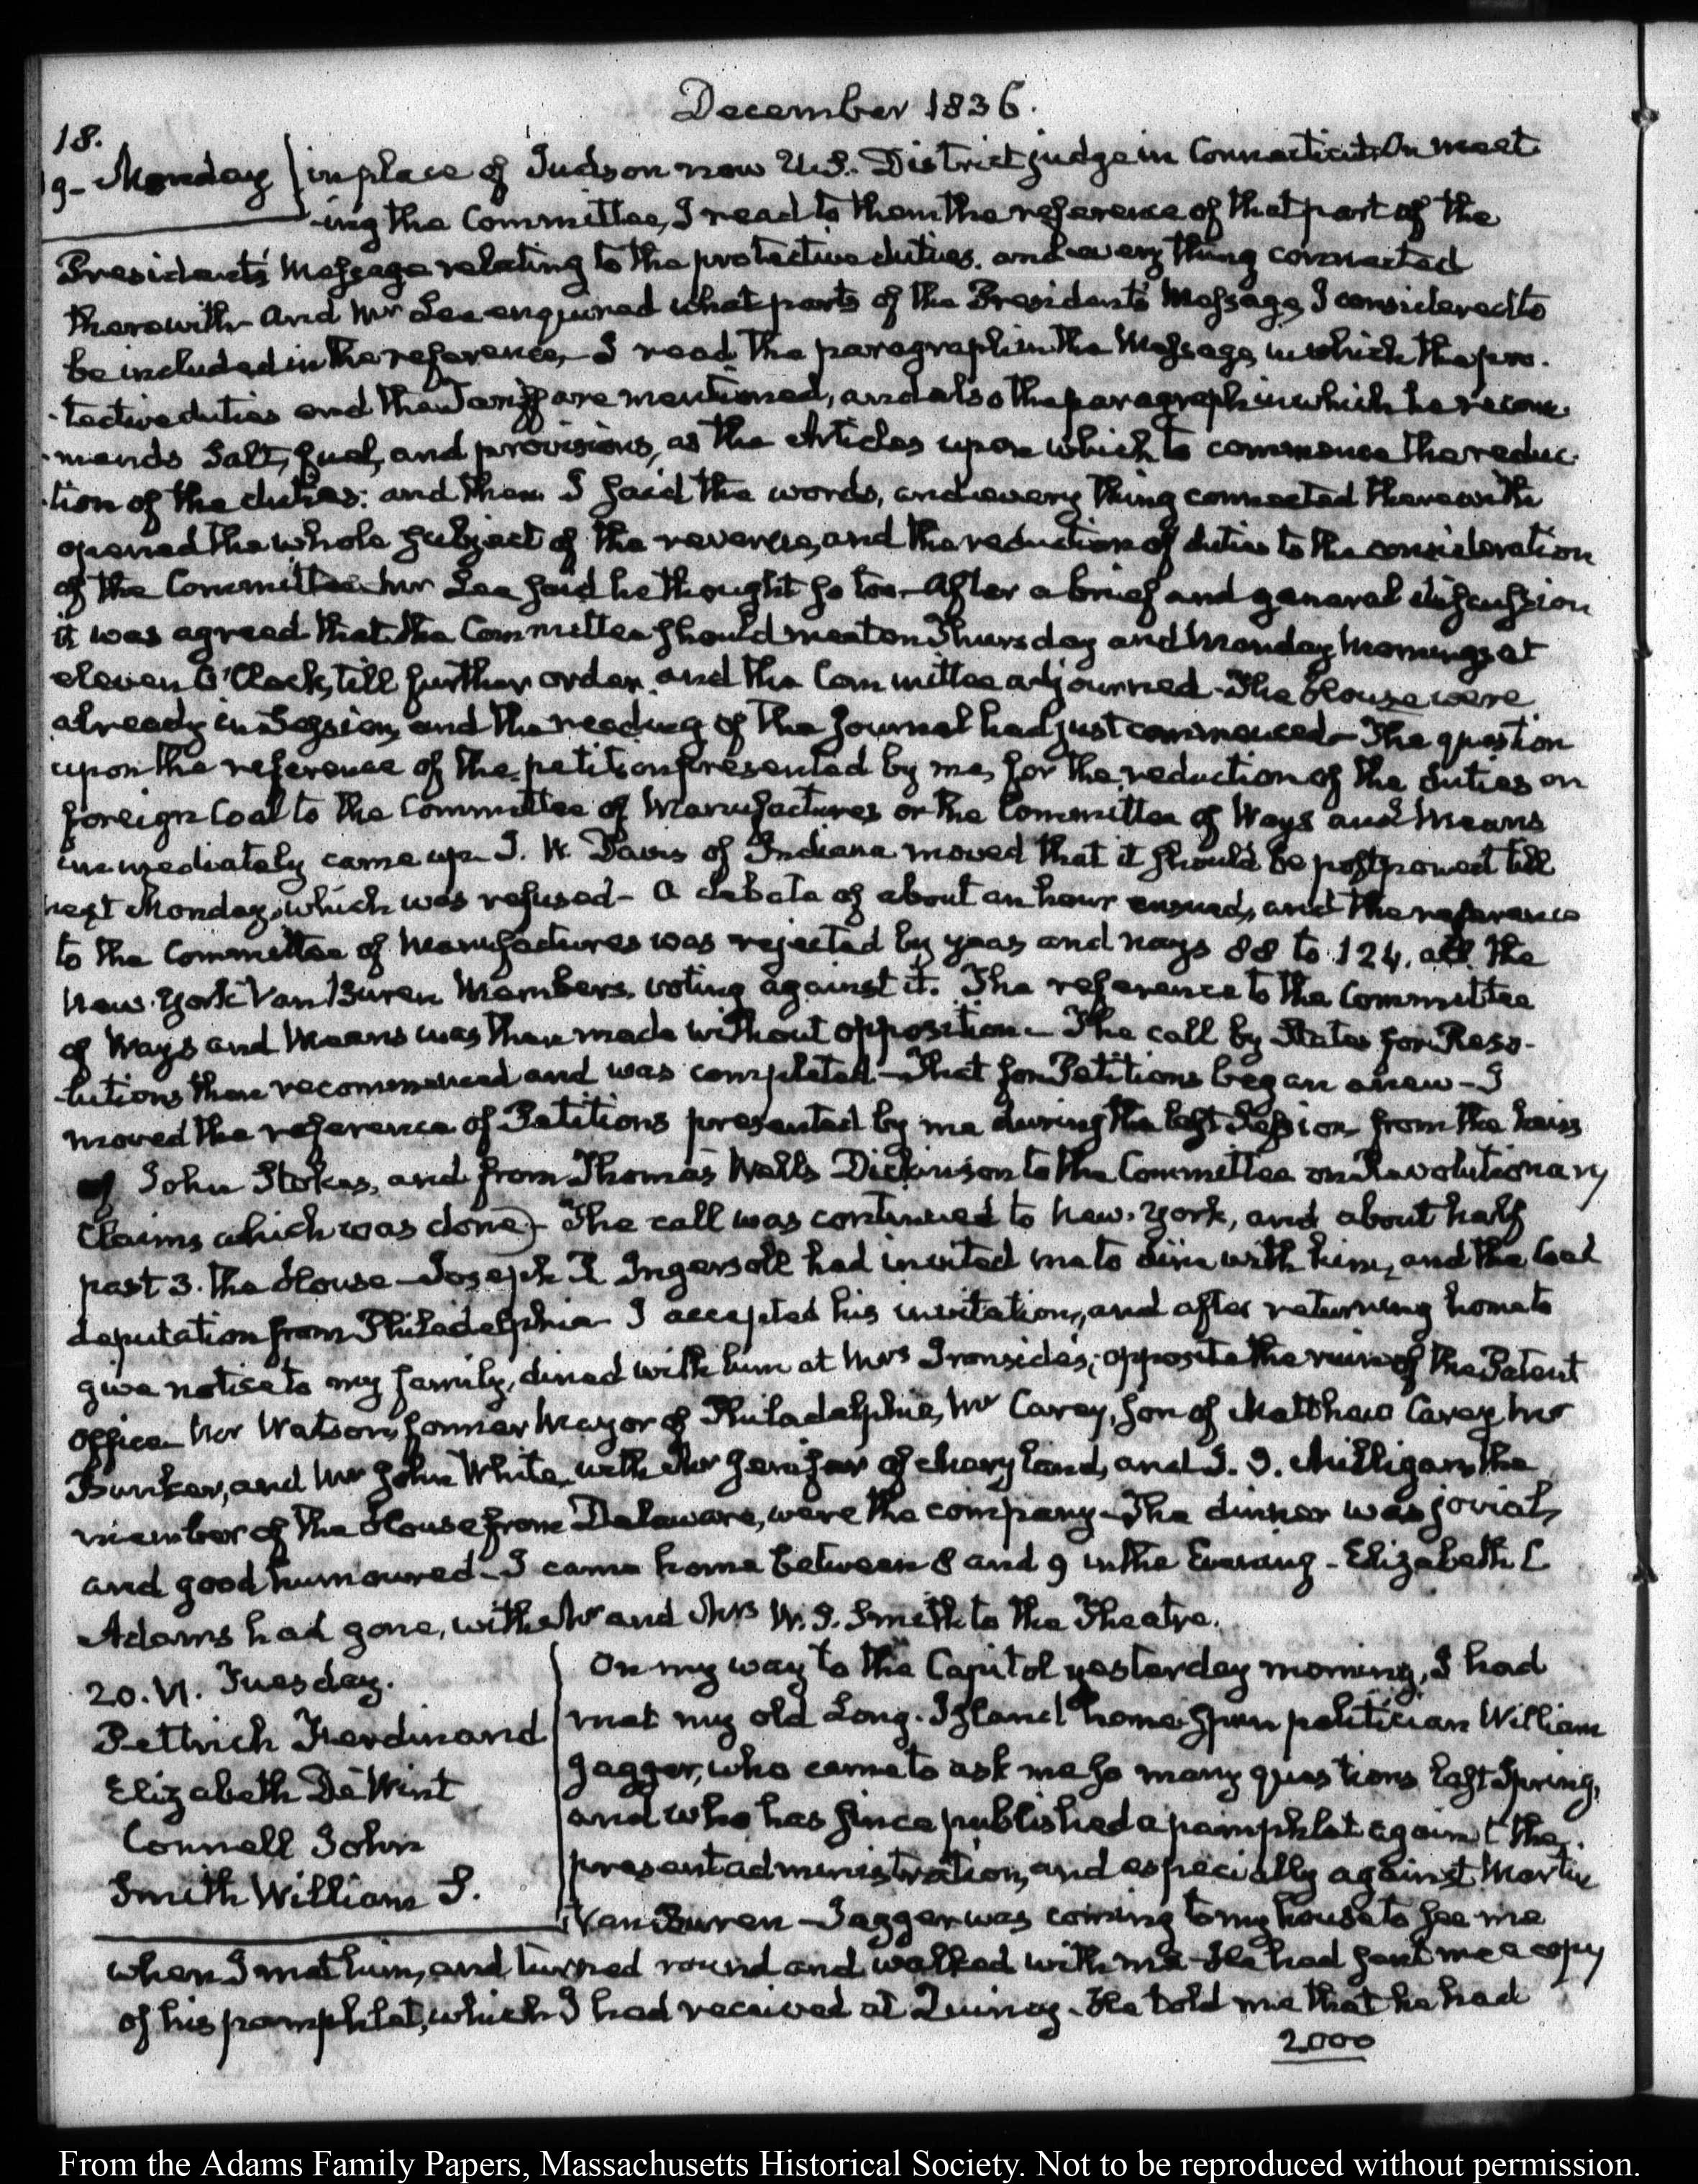 December 1836.
18.
19 - Monday in place of Judson now U.S. District judge in Connecticut. On meet-
-ing the Committee, I read to them the reference of that part of the
Presidents Message relating to the protective duties. and every thing connected
therewith and Mr Lee enquired what parts of the President's Message, I considered to
be included in the reference,- I read the paragraph in the Message, in which the pro-
-tective duties and the Tariff are mentioned, and also the paragraph in which he recom-
-mends Salt, fuel, and provisions, as the Articles upon which to commence the reduc-
-tion of the duties: and then I said the words, and every thing connected therewith
opened the whole subject of the revenue, and the reduction of duties to the consideration
of the Committee. Mr Lee said he thought so too- After a brief and general discussion
it was agreed that the Committee should meet on Thursday and Monday Mornings at
eleven O'Clock, till further order, and the Committee adjourned- The House were
already in Session, and the reading of the Journal had just commenced- The question
upon the reference of the petition presented by me, for the reduction of the duties on
foreign Coal to the Committee of Manufactures or the Committee of Ways and Means
immediately came up- J. W. Davis of Indiana moved that it should be postponed till
next Monday, which was refused- A debate of about an hour ensued, and the reference
to the Committee of Manufactures was rejected by yeas and nays 88 to 124. all the
New-York Van Buren Members, voting against it. The reference to the Committee
of Ways and Means was then made without opposition- The call by States for Reso-
-lutions then recommenced and was completed- That for Petitions began anew- I
moved the reference of Petitions presented by me during the last Session from the heirs
of John Stokes, and from Thomas Walls Dickinson to the Committee on Revolutionary
Claims which was done)- The call was continued to New-York, and about half
past 3. the House- Joseph R Ingersoll had invited me to dine with him, and the Coal
deputation from Philadelphia- I accepted his invitation, and after returning home to
give notice to my family, dined with him at Mrs Ironsides, opposite the ruin of the Patent
Office- Mr Watson, former Mayor of Philadelphia, Mr Carey, son of Matthew Carey Mr
Bunker, and Mr John White with Mr Jenifer of Maryland, and J. J. Milligan the
member of the House from Delaware, were the company- The dinner was jovial,
and good humoured- I came home between 8 and 9 in the Evening- Elizabeth C
Adams had gone, with Mr and Mrs W. S. Smith to the Theatre.
20. VI. Tuesday.
Pettrich Ferdinand
Elizabeth De Wint
Connell John
Smith William S.
On my way to the Capitol yesterday morning, I had
met my old Long-Island home-spun politician William
Jagger, who came to ask me so many questions last Spring,
and who has since published a pamphlet against the
present administration, and especially against Martin
Van Buren- Jagger was coming to my house to see me
when I met him, and turned round and walked with me- He had sent me a copy
of his pamphlet, which I had received at Quincy- He told me that he had
2000
From the Adams Family Papers, Massachusetts Historical Society. Not to be reproduced without permission.